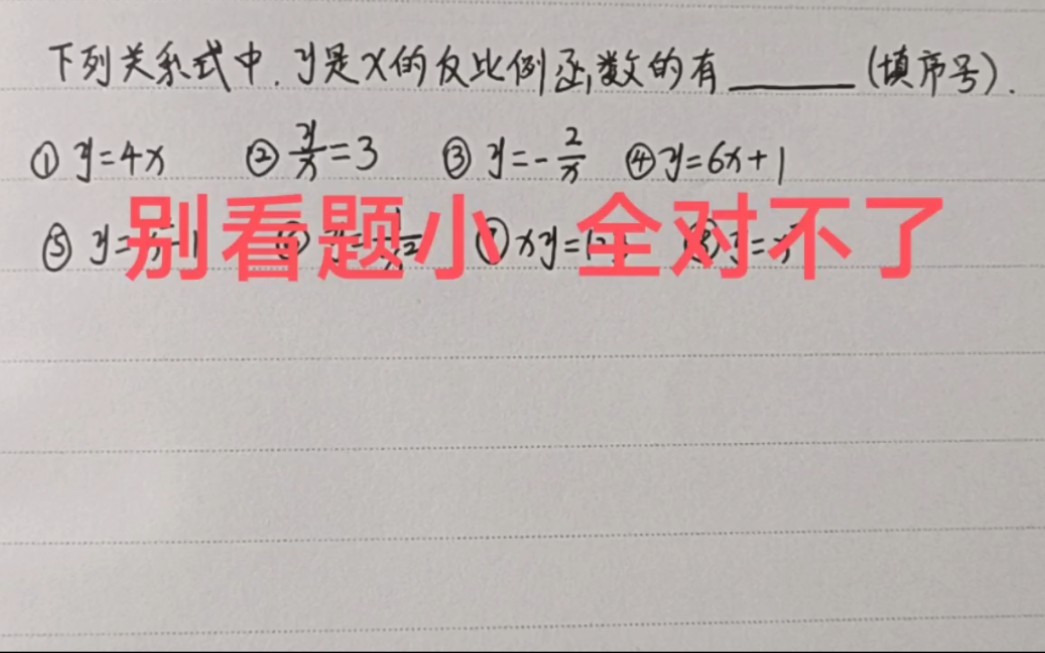 下列关系式中,y是x的反比例函数的有______(填序号).
① y=4x ② y/x=3 ③ y=-2/x ④ y=6x+1
别看题小 全对不了
⑤ y= ⑦ xy=